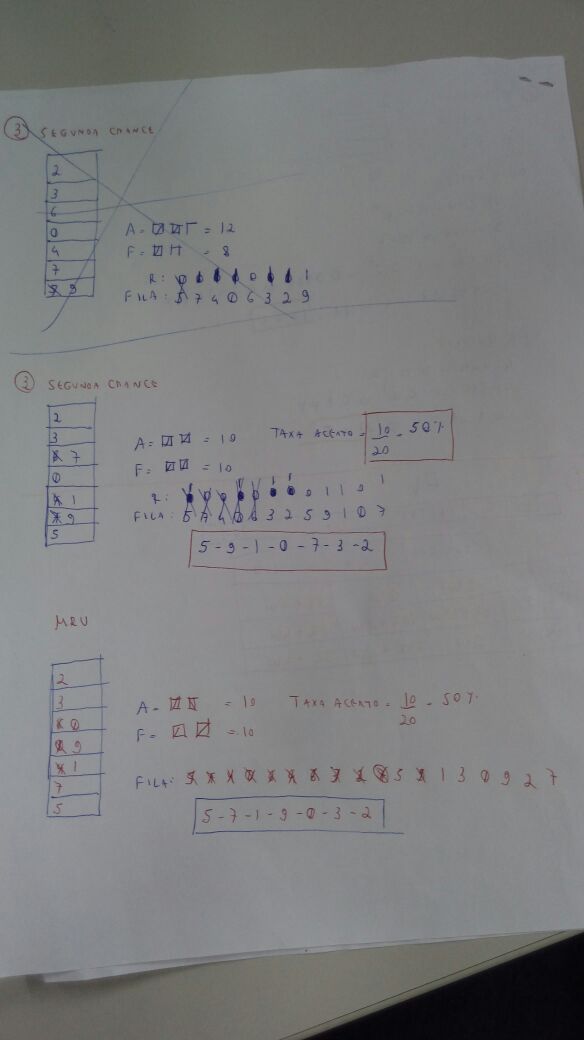 ③ SEGUNDA CHANCE
2
3
6
0
4
7
9
A = = 12
F = = 8
R: 0 1
FILA: 5 7 4 0 6 3 2 9
② SEGUNDA CHANCE
2
3
7
0
1
9
5
A = = 10 TAXA ACERTO = 10/20 = 50%
F = = 10
R: 0 1 1 0 1
FILA: 5 7 4 0 6 3 2 5 9 1 0 7
5 - 9 - 1 - 0 - 7 - 3 - 2
MRU
2
3
0
9
1
7
5
A = = 10 TAXA ACERTO = 10/20 = 50%
F = = 10
FILA: 5 1 3 0 9 2 7
5 - 7 - 1 - 9 - 0 - 3 - 2